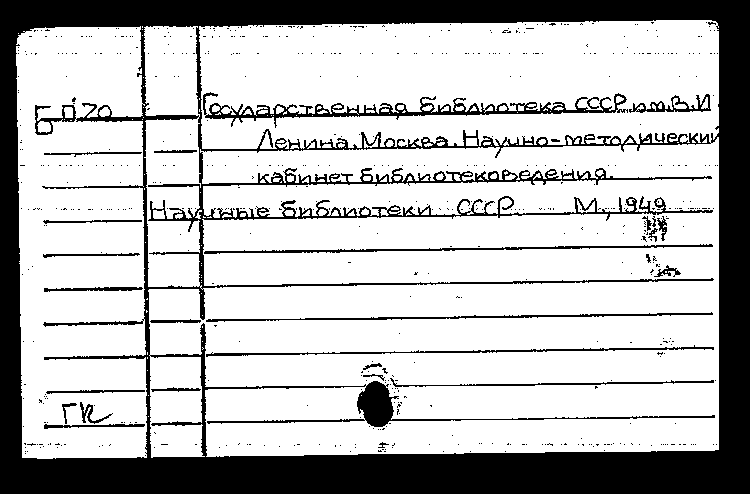 Б П70 Государственная библиотека СССР им. В. И.
Ленина. Москва. Научно-методический
кабинет библиотековедения.
Научные библиотеки СССР М., 1949
ГК